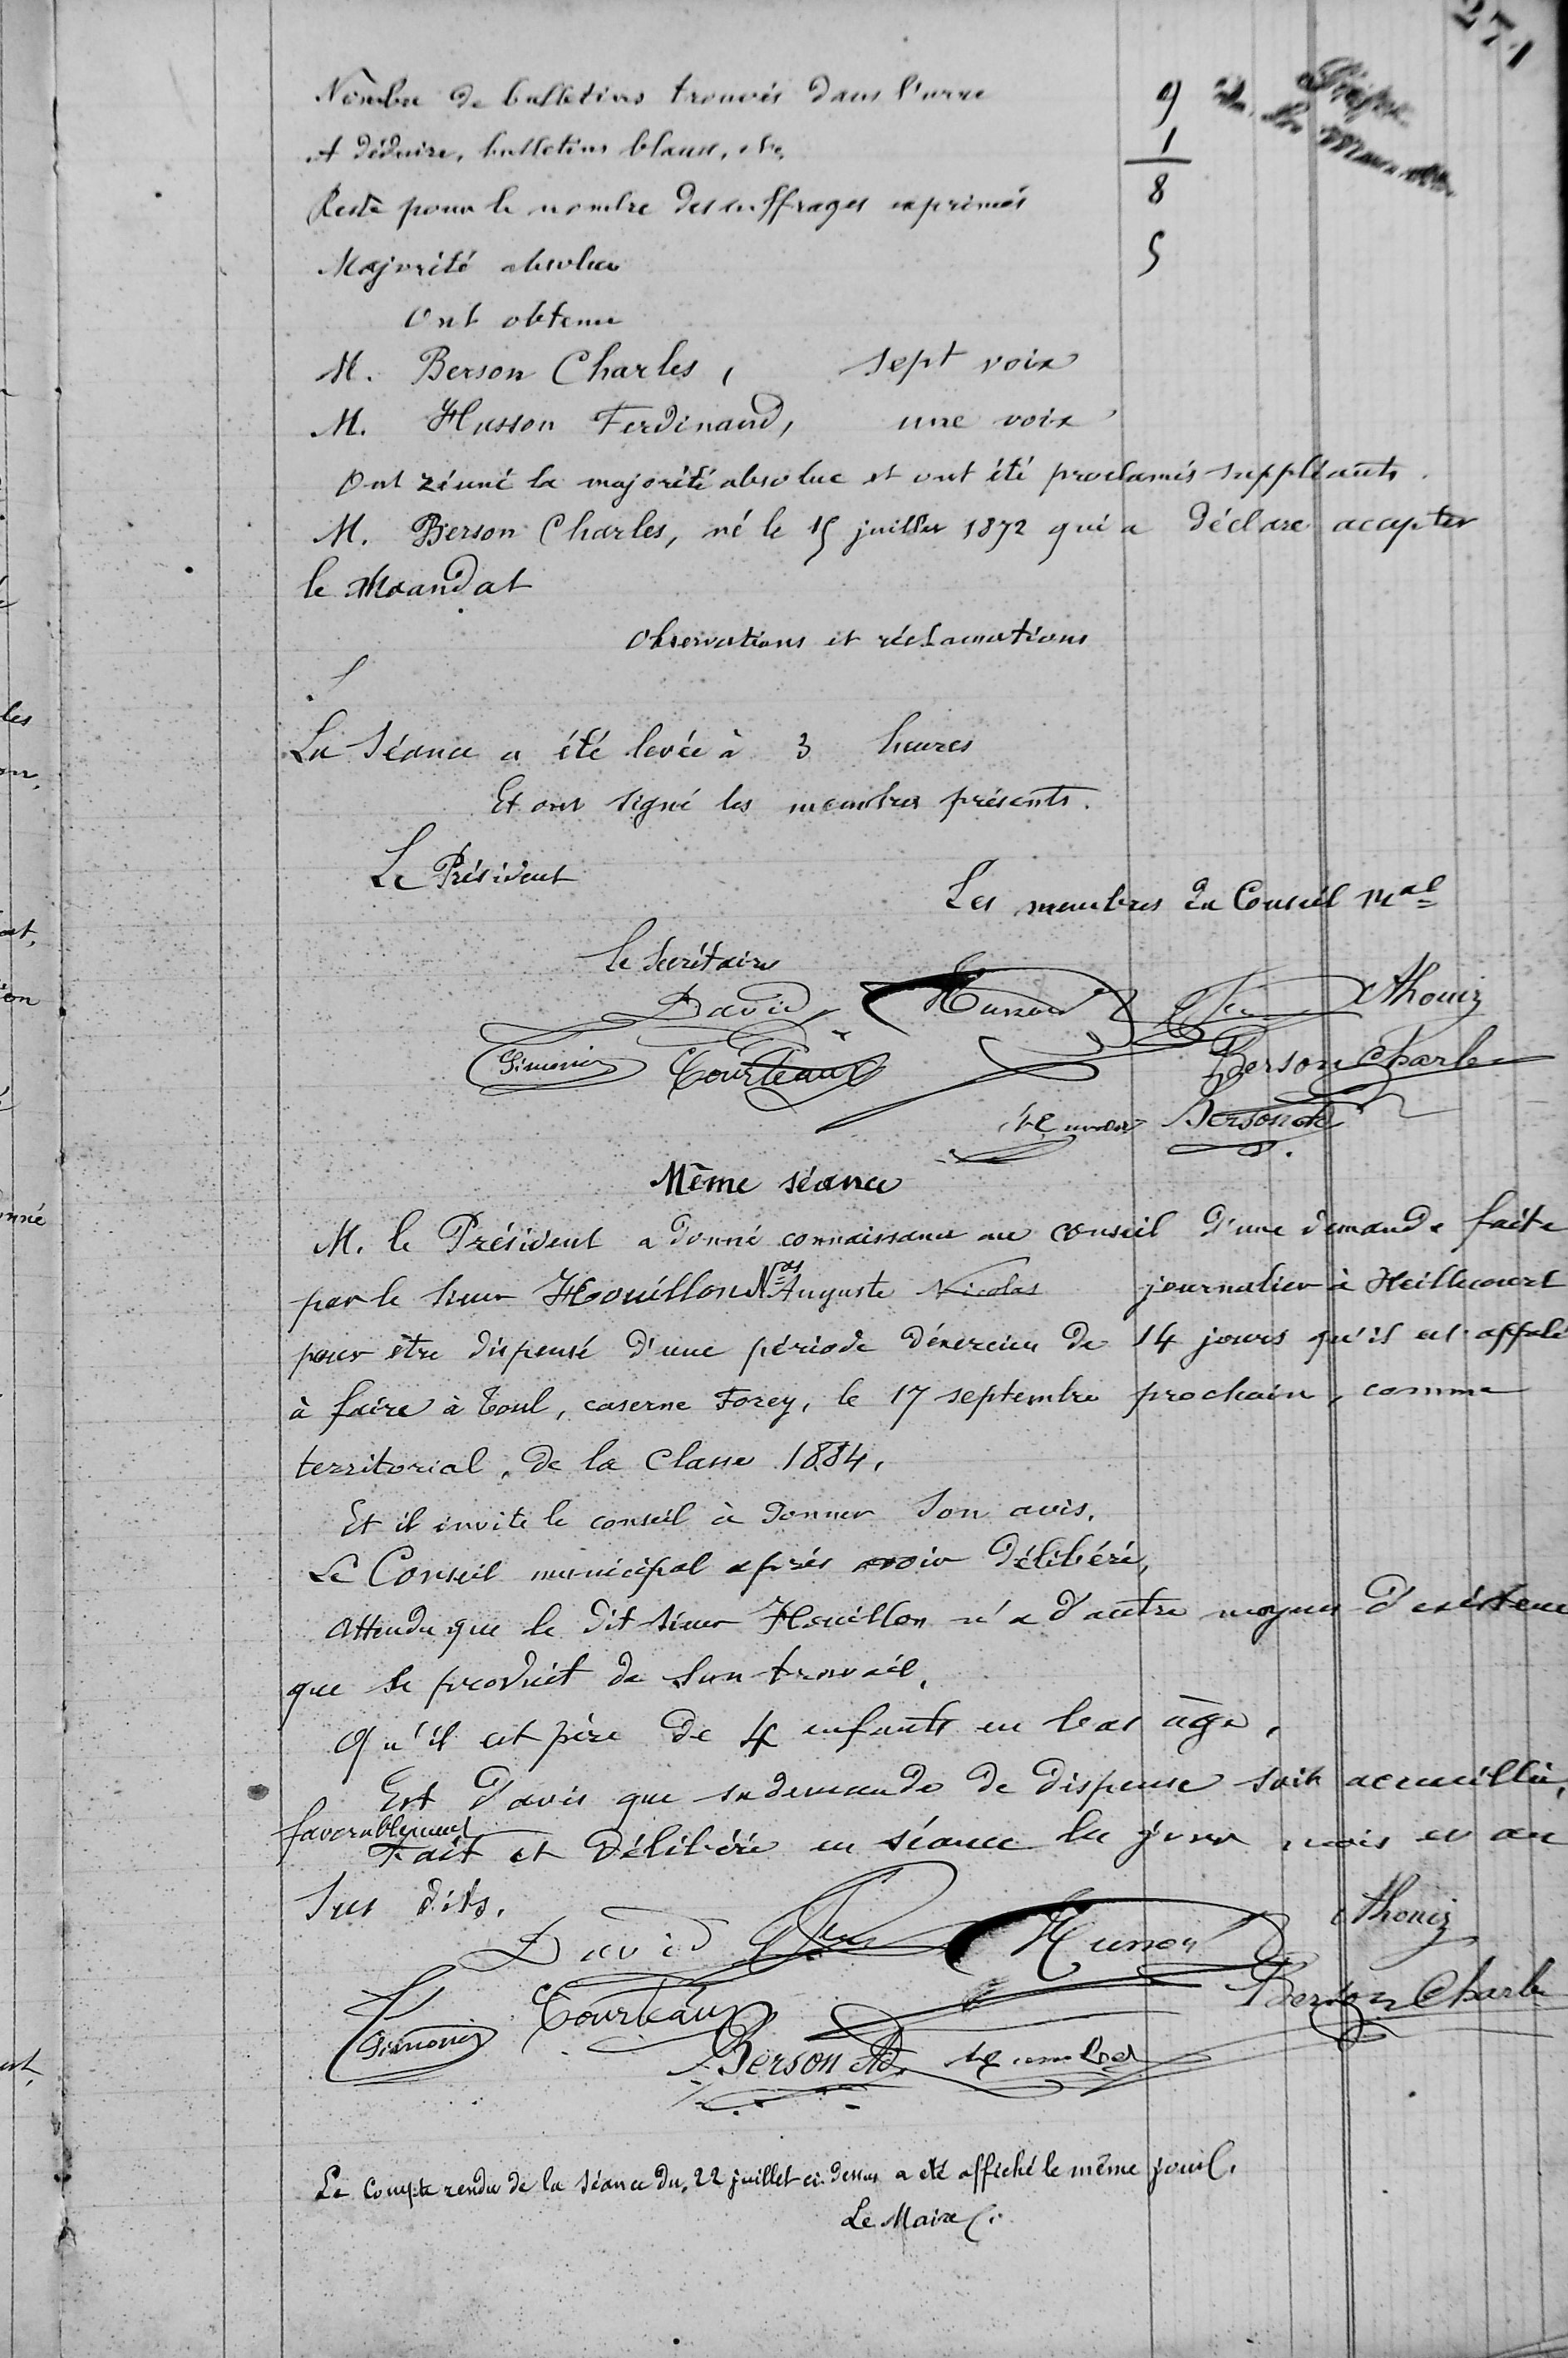 271
Nombre de bulletins trouvés dans l'urne 9
A déduire, bulletins blancs, etc. 1
Reste pour le nombre des suffrages exprimés 8
Majorité absolue 5
Ont obtenu
M. Berson Charles, sept voix
M. Husson Ferdinand, une voix
Ont réuni la majorité absolue et ont été proclamés suppléants.
M. Berson Charles, né le 15 juillet 1872 qui a déclaré accepter
le Mandat
Observations et réclamations
La Séance a été levée à 3 heures
Et ont signé les membres présents.
Le Président
Les membres du Conseil Mal
Le Secrétaire
David Husson Thouiz
Simonin Courteaux Berson Charles
Berson
Même séance
M. le Président a donné connaissance au conseil d'une demande faite
par le sieur Houillon Nas Auguste Nicolas journalier à Heillecourt
pour être dispensé d'une période d'exercices de 14 jours qu'il est appelé
à faire à Toul, caserne Forey, le 17 septembre prochain, comme
territorial, de la classe 1884,
Et il invite le conseil à donner son avis.
Le Conseil municipal après avoir délibéré,
Attendu que le dit sieur Houillon n'a d'autre moyens d'existence
que le produit de son travail,
Qu'il est père de 4 enfants en bas âge,
Est d'avis que sa demande de dispense soit accueillie,
favorablement
Fait et délibéré en séance les jour, mois et an
sus dits.
David Husson Thouiz
Simonin Courteaux Berson Charles
Berson Ad.
Le Compte rendu de la séance du 22 juillet ci-dessus a été affiché le même jour.
Le Maire